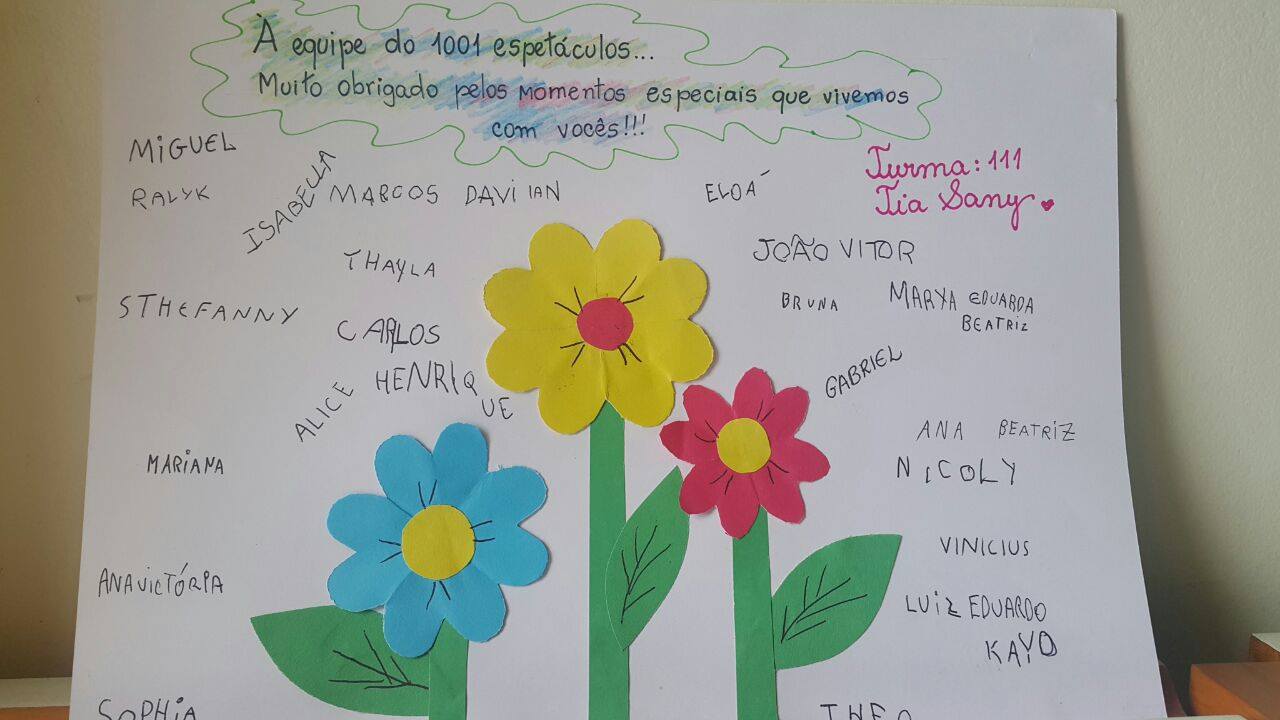 À equipe do 1001 espetáculos...
Muito obrigado pelos momentos especiais que vivemos
com vocês!!!
Turma: 111
Tia Sany
MiGUEL
RALYK
ISABELLA
MARCOS
DAVI IAN
ELOÁ
THAYLA
JOÃO VITOR
STHEFANNY
CARLOS
HENRIQUE
BRUNA
MARYA EDUARDA
BEATRIZ
ALICE
GABRIEL
MARIANA
ANA BEATRIZ
NICOLY
VINICIUS
ANA VICTÓRIA
LUIZ EDUARDO
KAYO
SOPHIA
THEO